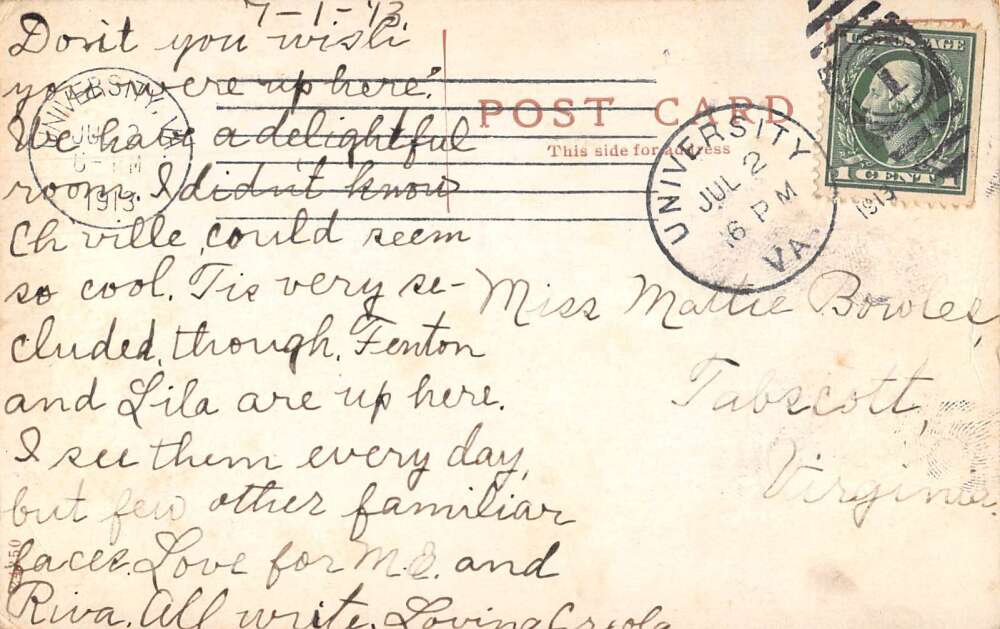 7-1-'13.
Don't you wish
you were up here?
We have a delightful
room. I didn't know
Ch'ville could seem
so cool. Tis very se-
cluded, though. Fenton
and Lila are up here.
I see them every day,
but few other familiar
faces. Love for M.E. and
Riva. All write. Loving Creola
UNIVERSITY, VA.
JUL 2
6 PM
1913
POST CARD
This side for address
UNIVERSITY
JUL 2
6 PM
VA.
1913
U.S. POSTAGE
1 CENT 1
1
Miss Mattie Bowles,
Tabscott,
Virginia.